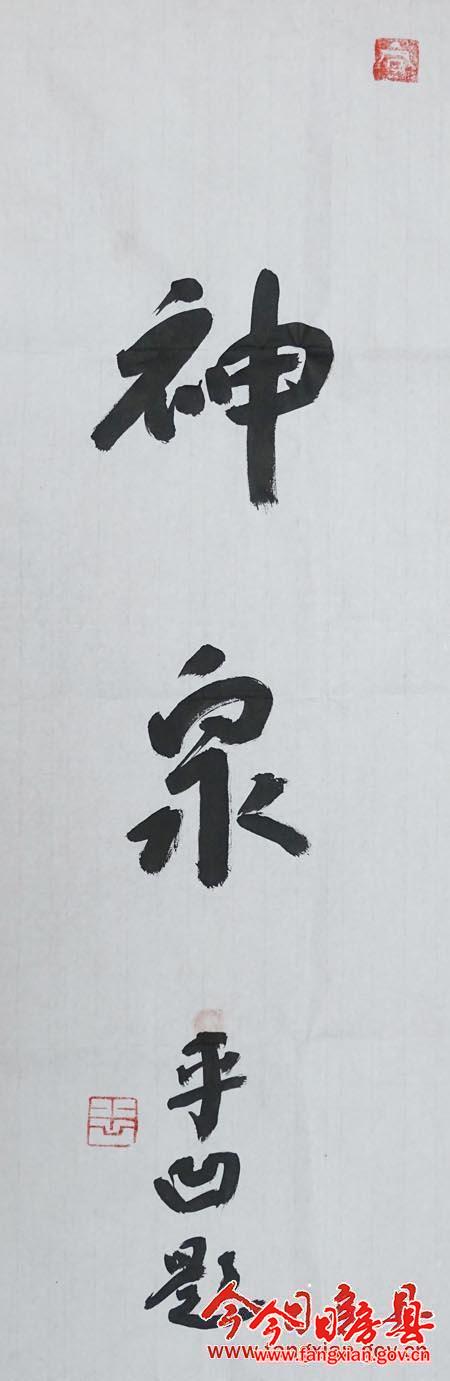 神泉
平凹题
今今日房县
www.fangxian.gov.cn